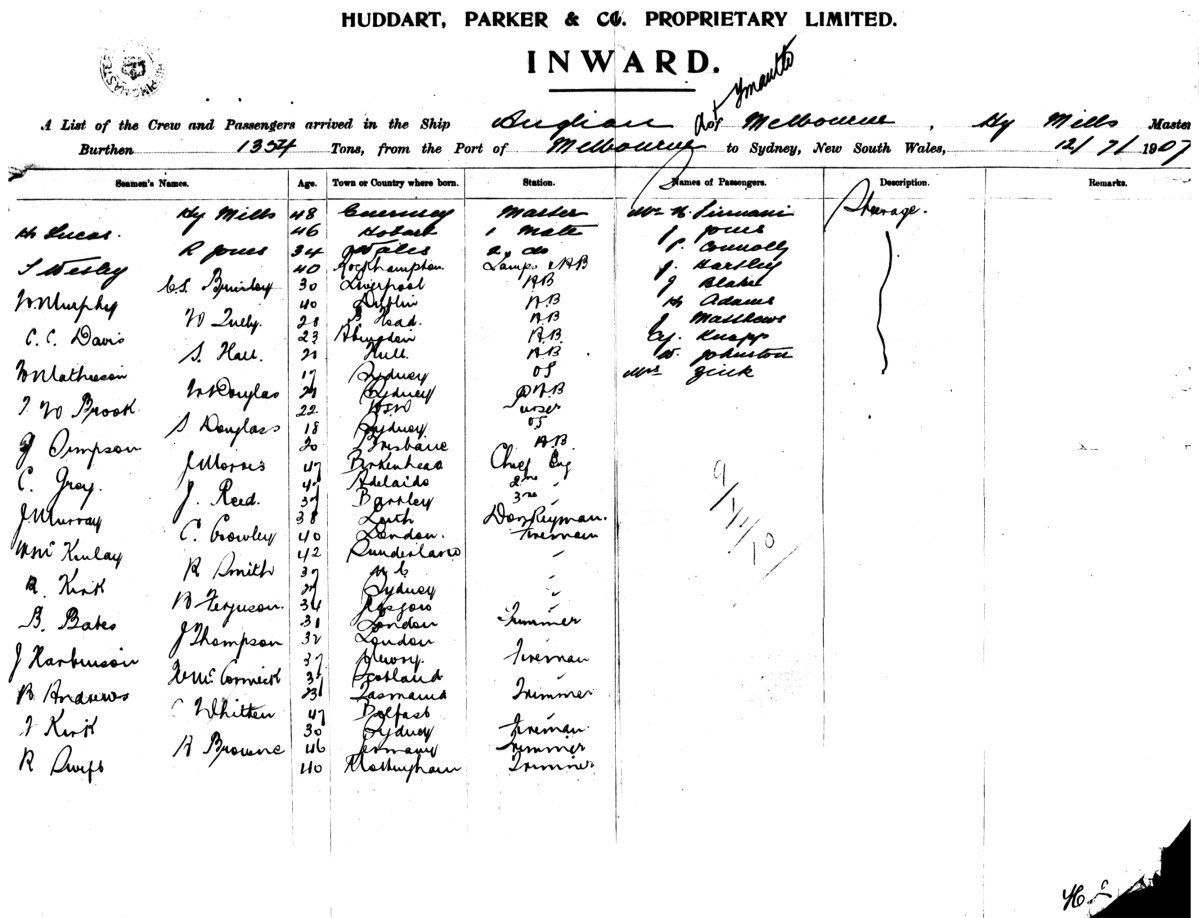 HUDDART, PARKER & Co. PROPRIETARY LIMITED.
INWARD.
A List of the Crew and Passengers arrived in the Ship Anglian of Melbourne, Hy Mills Master
Burthen 1354 Tons, from the Port of Melbourne to Sydney, New South Wales, 12/7/1907
Seamen's Names. Age. Town or Country where born. Station. Names of Passengers. Description. Remarks.
Hy Mills 48 Guernsey Master Mr H. Steerage.
H Lucas. 46 Hobart 1 Mate J. Jones
R Jones 34 Wales 2 do P. Connolly
T Wesley 40 Rockhampton Lamps & AB J. Hartley
C.S. 30 Liverpool AB J Blake
W Murphy 40 Dublin AB H Adams
W 28 B Head. AB J Matthews
C. C. Davis 23 Abingdon A.B. Cy. Knapp
S. Hall 21 Hull AB W. Johnston
W Mathieson 17 Sydney OS Mrs Zink
W Douglas 21 Sydney AB
T W Brook 22 NSW Purser
S Douglass 18 Sydney OS
J Simpson 20 Brisbane A.B.
J Morris 47 Birkenhead Chief Eng
C. Grey. Adelaide 2nd "
J. Reed. 37 3rd "
J Murray 38 Leith Donkeyman.
C. Crowley 40 London. Fireman
W McKinlay 42 Sunderland "
R Smith 37 "
R. Kirk Sydney "
W Ferguson. 34 Glasgow
B. Bates London Trimmer
J Thompson 32 London
J Harbinson 37 Newry. Fireman
W McCormick Scotland "
R Andrews 23 Tasmania Trimmer
C Whitten 47 Belfast
T Kirk 30 Sydney Fireman
A Browne 46 Germany Trimmer
R Swift 40 Nottingham Trimmer